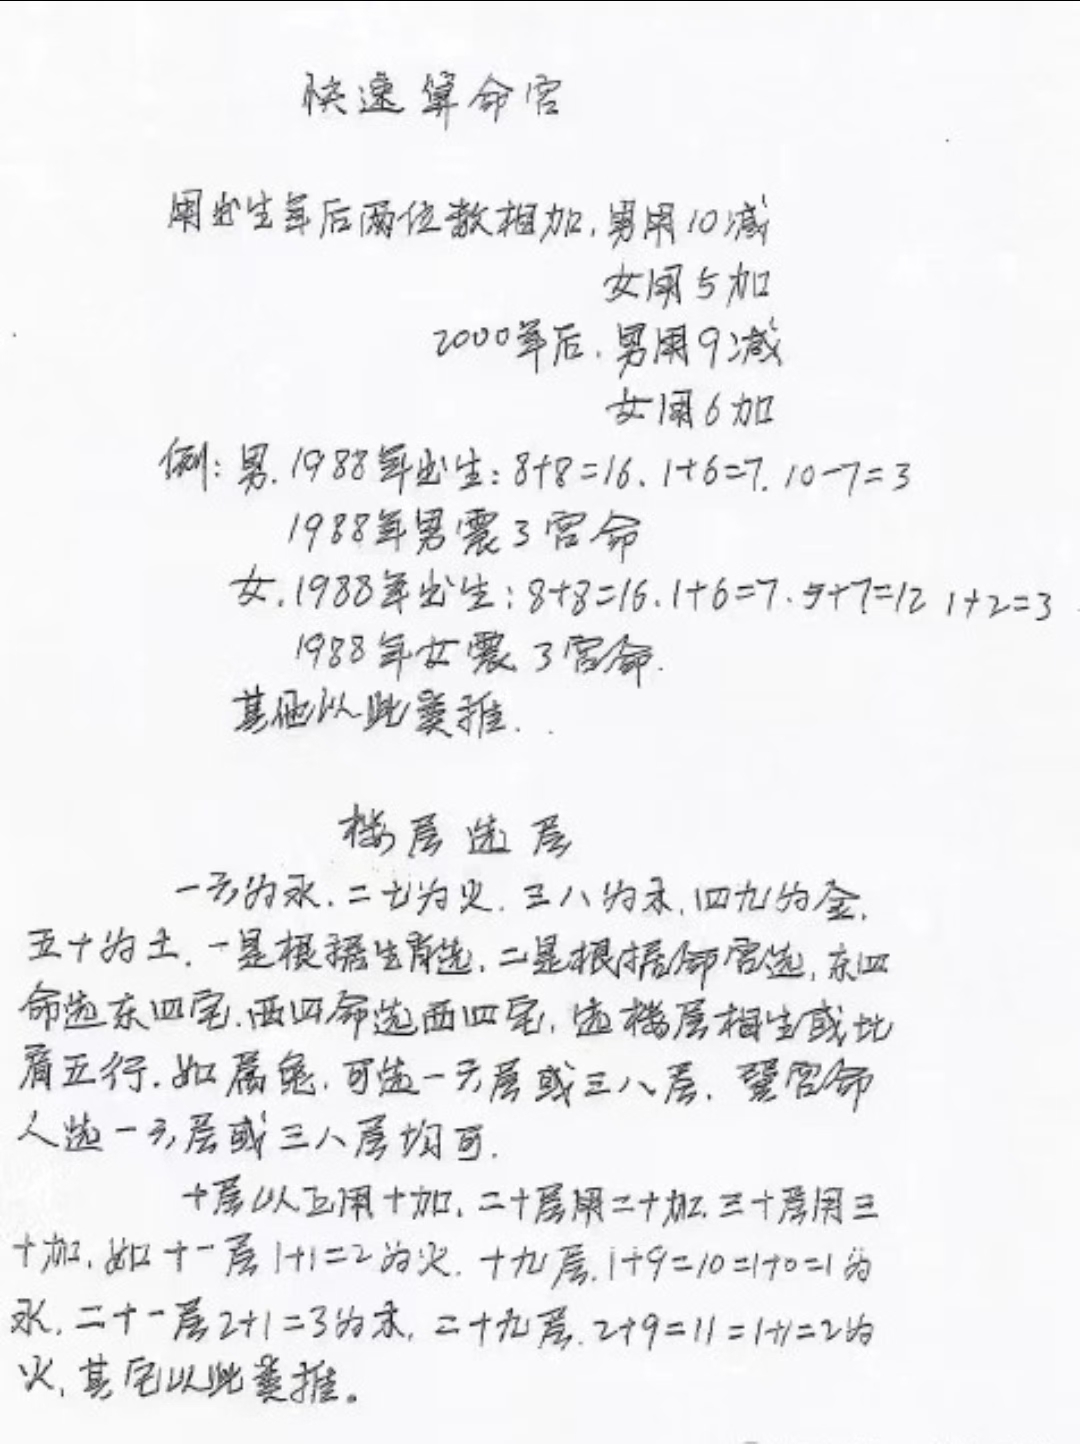 快速算命宫
用出生年后两位数相加,男用10减
女用5加
2000年后,男用9减
女用6加
例:男.1988年出生:8+8=16、1+6=7.10-7=3
1988年男震3宫命
女.1988年出生:8+8=16.1+6=7.5+7=12 1+2=3
1988年女震3宫命.
其他以此类推.
楼层选层
一六为水.二七为火.三八为木,四九为金,
五十为土.一是根据生肖选,二是根据命宫选,东四
命选东四宅.西四命选西四宅,选楼层相生或比
肩五行.如属兔,可选一六层或三八层.震宫命
人选一六层或三八层均可.
十层以上用十加,二十层用二十加,三十层用三
十加,如十一层1+1=2为火.十九层.1+9=10=1+0=1为
水.二十一层2+1=3为木,二十九层.2+9=11=1+1=2为
火,其它以此类推。